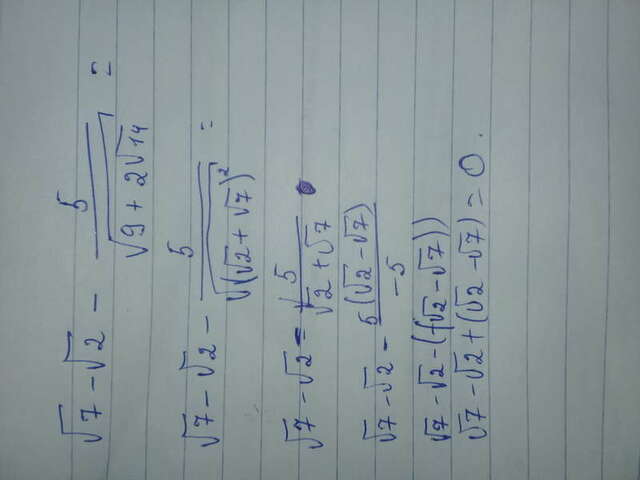 √7 - √2 - 5/√(9 + 2√14) =
√7 - √2 - 5/√((√2 + √7)²) =
√7 - √2 - 5/(√2 + √7)
√7 - √2 - 5(√2 - √7)/-5
√7 - √2 - (-(√2 - √7))
√7 - √2 + (√2 - √7) = 0.